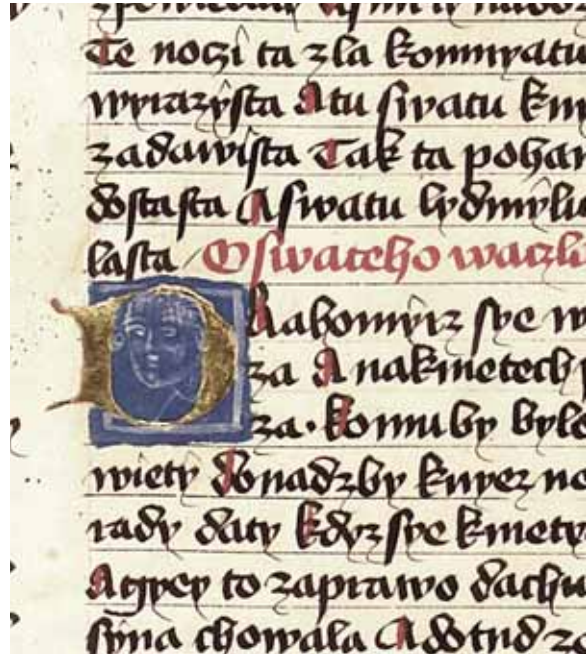 Te noczî ta zla kommyatu
wyrazýsta A tu swatu kny
zadawista Tak ta pohan
dostasta A swatu lydmylu
lasta O swateho waczl
D Rahomýrz sye w
za A nakmetech
za. komu by byl
wiety donadzby knyez ne
rady daty kdyz sye kmety
A gyey to zaprawo dachu
syna chowala A dotud za